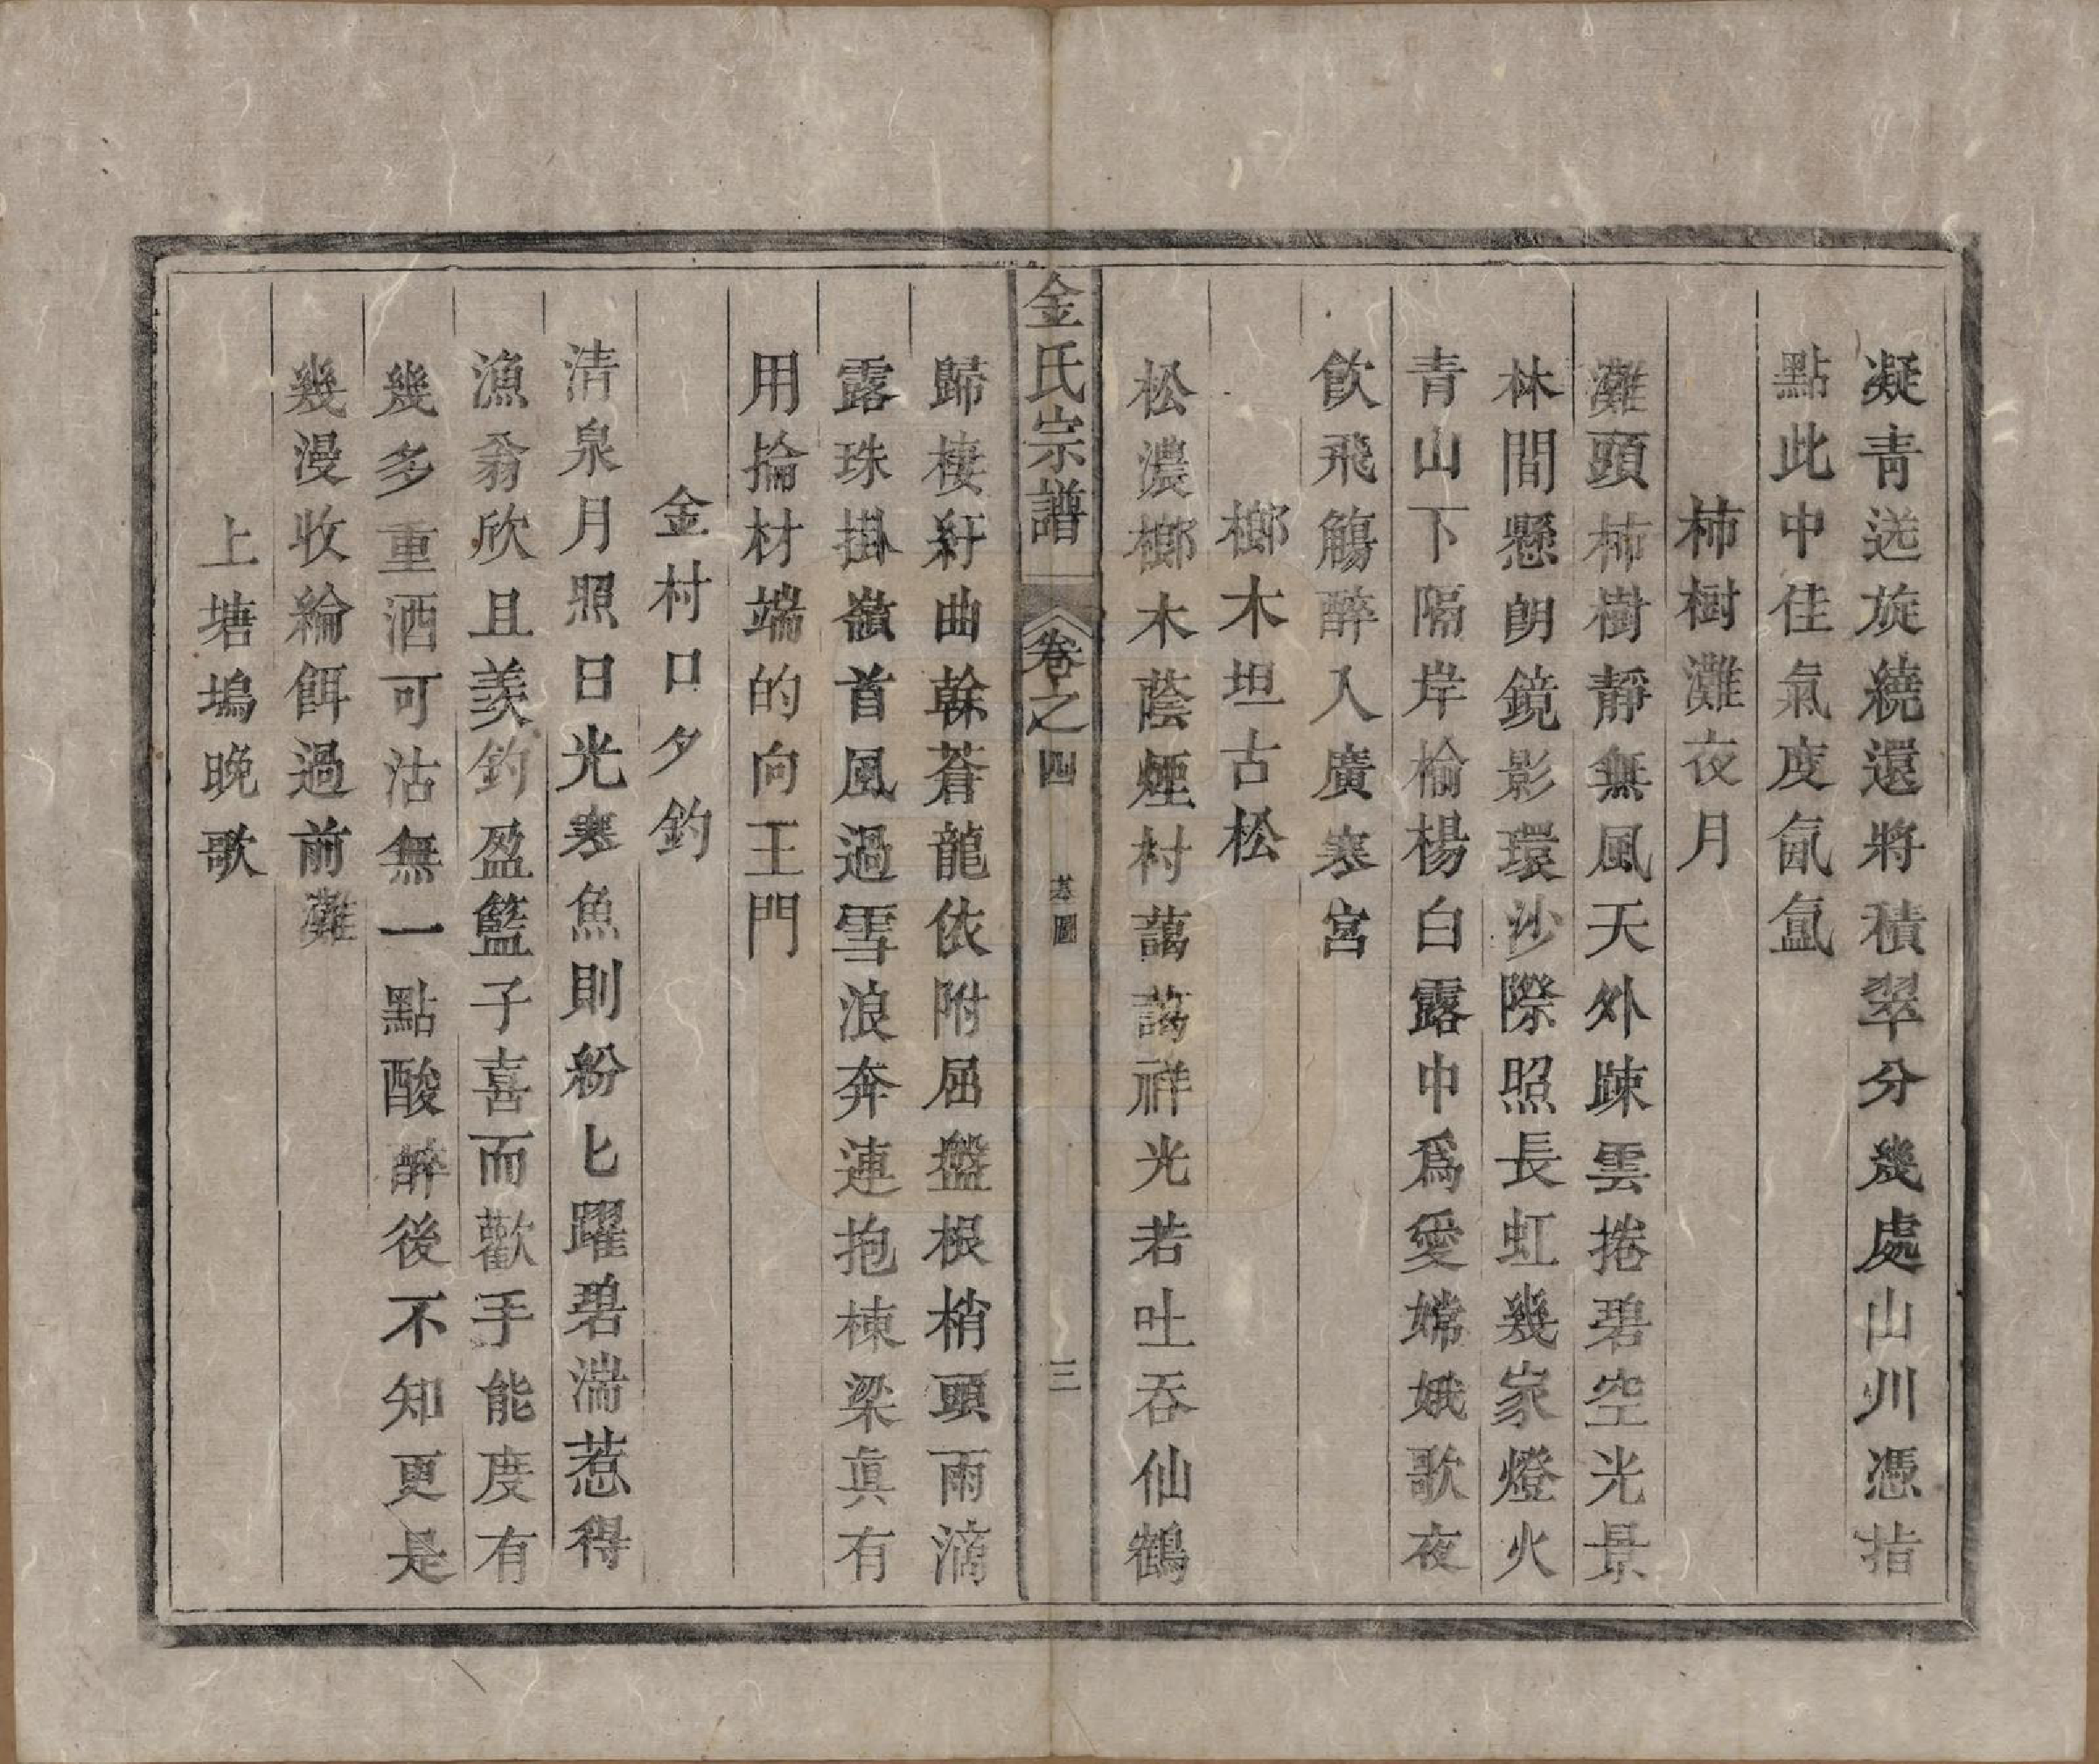 凝青送旋繞還將積翠分幾處山川憑指
點此中佳氣度氤氳
柿樹灘夜月
灘頭柿樹靜無風天外踈雲捲碧空光景
林間懸朗鏡影環沙際照長虹幾家燈火
青山下隔岸榆楊白露中爲愛嫦娥歌夜
飲飛觴醉入廣寒宮
榔木坦古松
松濃榔木蔭煙村藹藹祥光若吐吞仙鶴
金氏宗譜
卷之四
基圖
三
歸棲紆曲幹蒼龍依附屈盤根梢頭雨滴
露珠掛嶺首風過雪浪奔連抱棟梁眞有
用掄材端的向王門
金村口夕釣
清泉月照日光寒魚則紛匕躍碧湍惹得
漁翁欣且羨釣盈籃子喜而歡手能度有
幾多重酒可沽無一點酸醉後不知更是
幾漫收綸餌過前灘
上塘塢晚歌